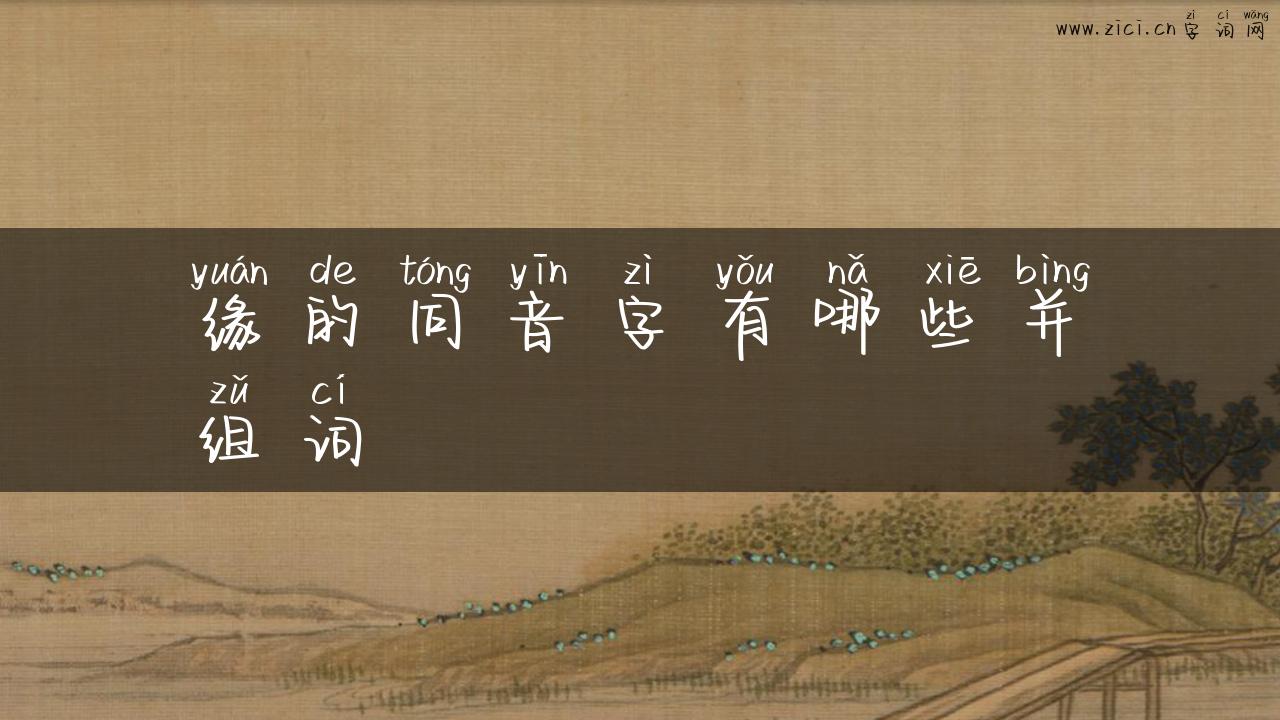 zì cí wǎng
www.zici.cn字词网
yuán de tóng yīn zì yǒu nǎ xiē bìng
缘的同音字有哪些并
zǔ cí
组词